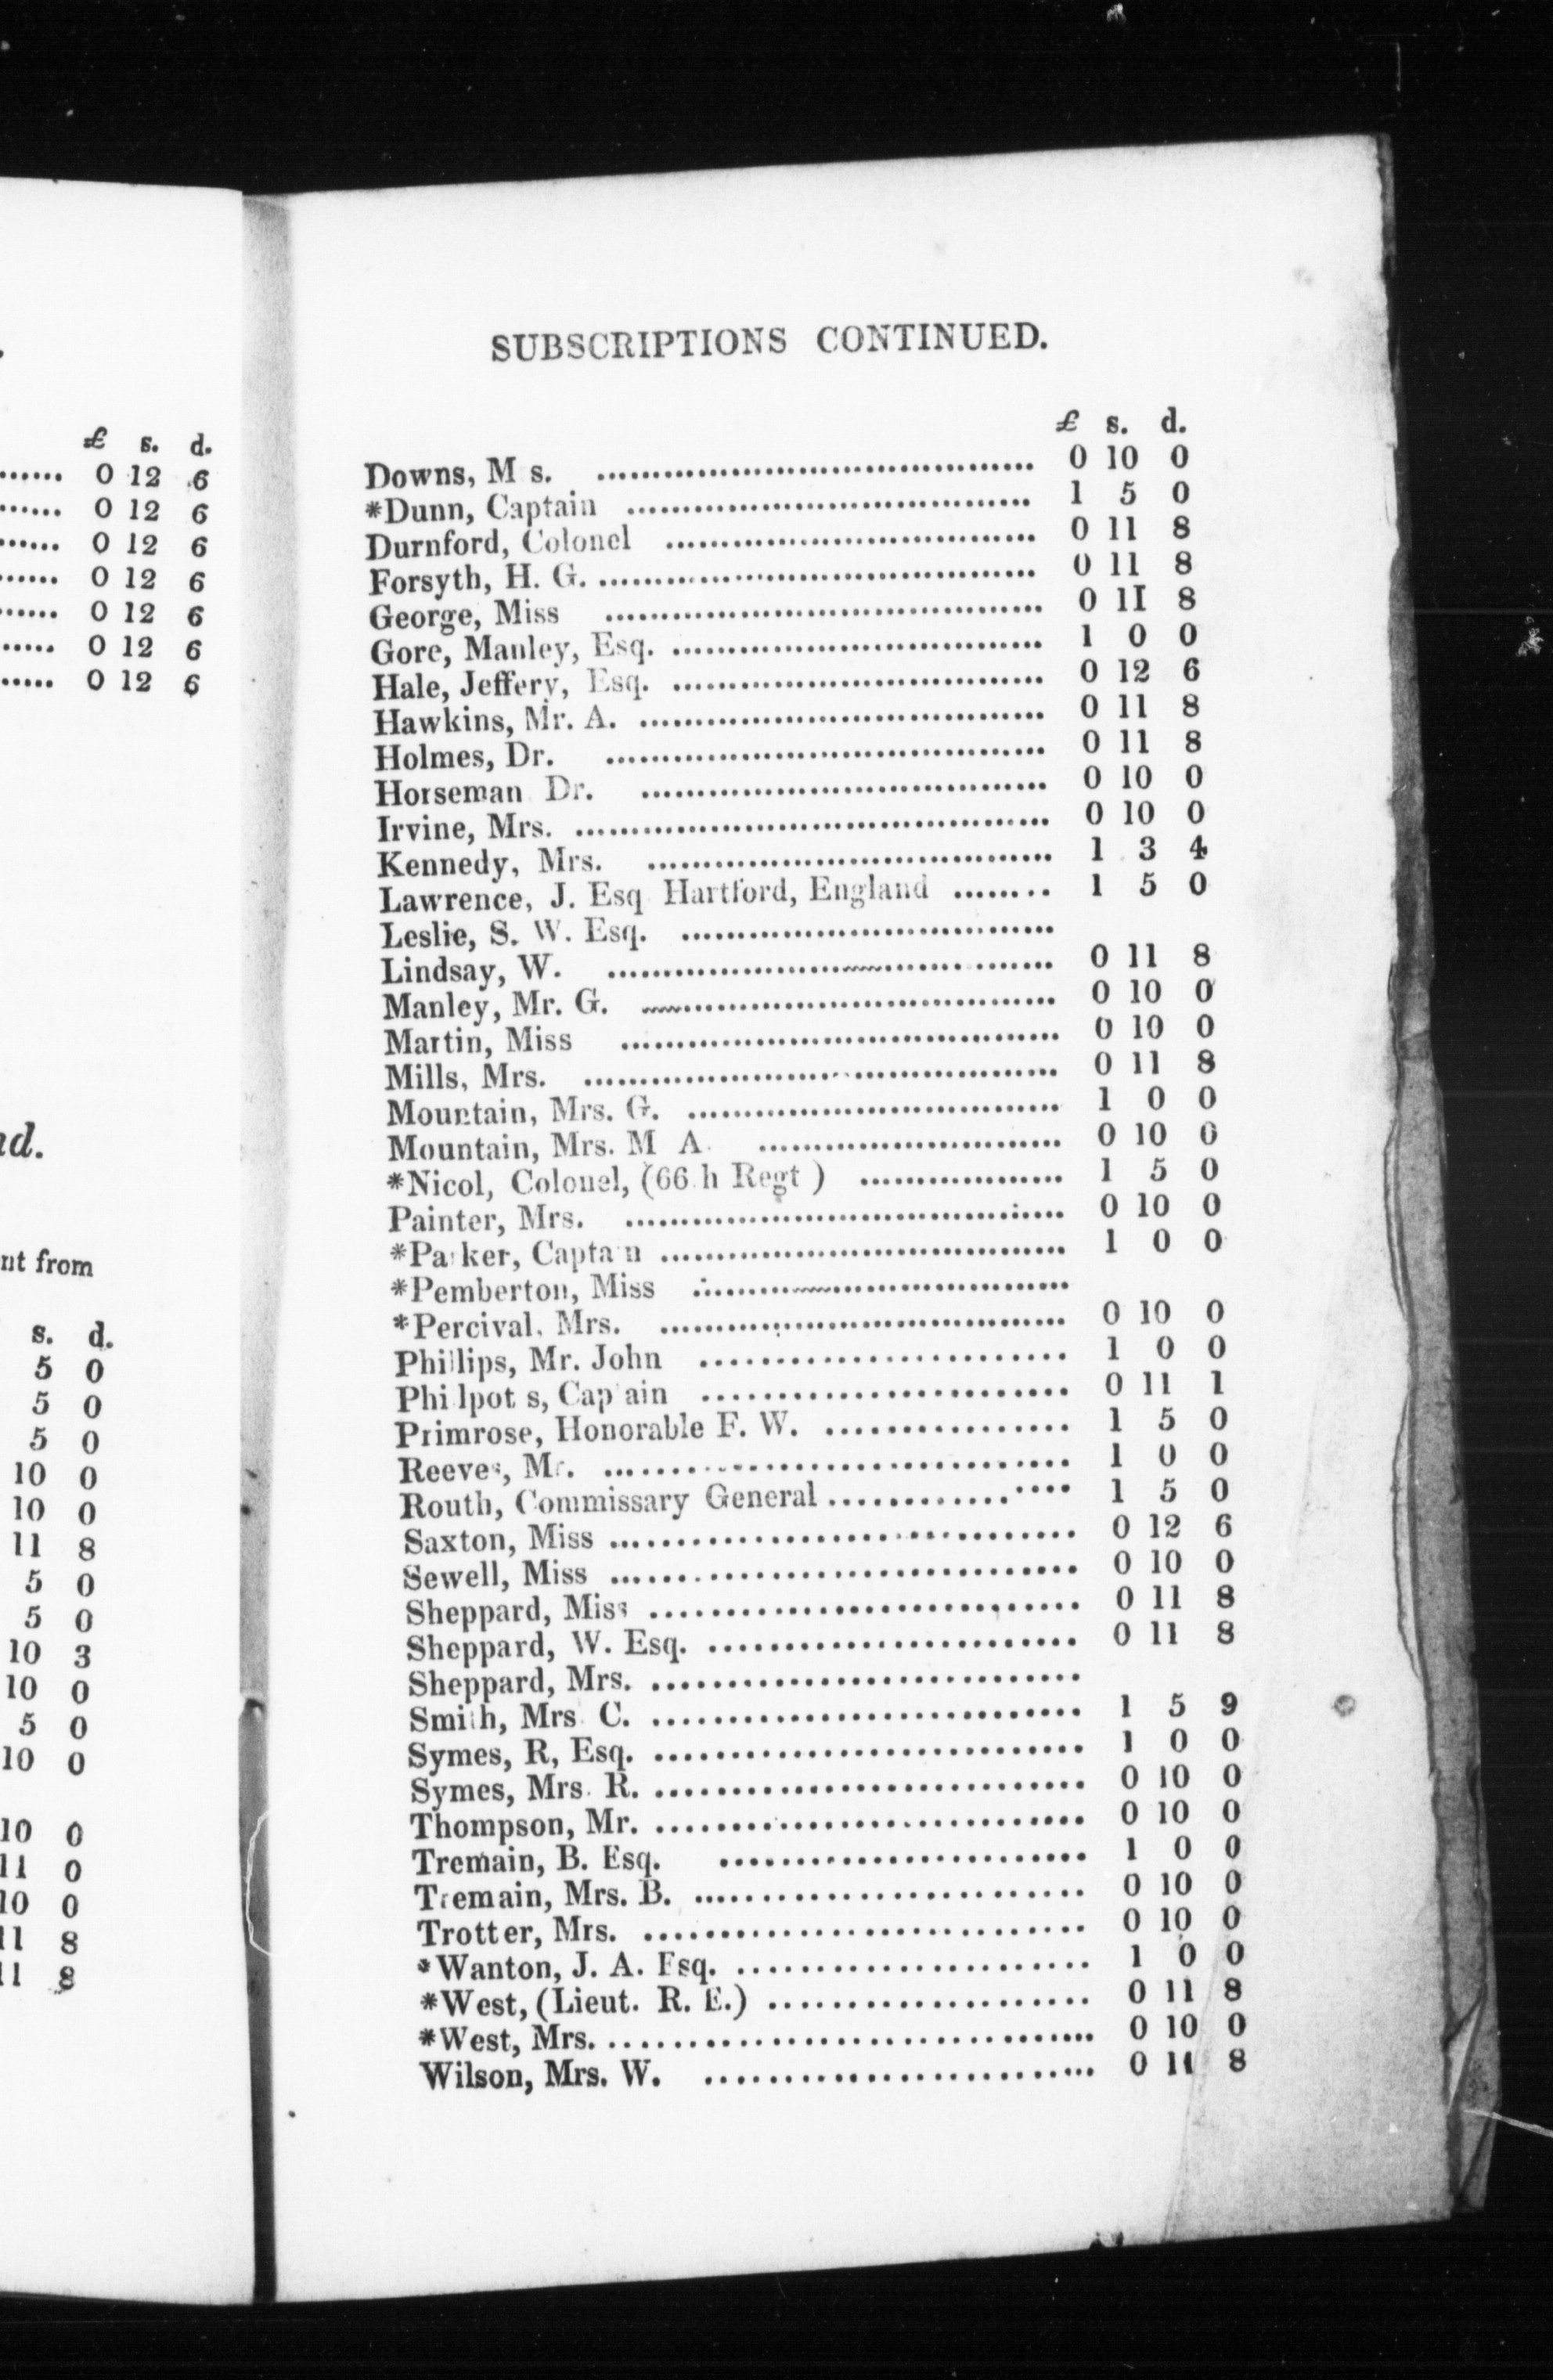 £ s. d.
...... 0 12 6
...... 0 12 6
...... 0 12 6
...... 0 12 6
...... 0 12 6
..... 0 12 6
..... 0 12 6
d.
nt from
s. d.
5 0
5 0
5 0
10 0
10 0
11 8
5 0
5 0
10 3
10 0
5 0
10 0
10 0
11 0
10 0
11 8
11 8
SUBSCRIPTIONS CONTINUED.
£ s. d.
Downs, M s. ...................................... 0 10 0
*Dunn, Captain ................................... 1 5 0
Durnford, Colonel ................................ 0 11 8
Forsyth, H. G. ...................................... 0 11 8
George, Miss ...................................... 0 11 8
Gore, Manley, Esq. ................................ 1 0 0
Hale, Jeffery, Esq. ................................ 0 12 6
Hawkins, Mr. A. ................................... 0 11 8
Holmes, Dr. ...................................... 0 11 8
Horseman Dr. ................................... 0 10 0
Irvine, Mrs. ......................................... 0 10 0
Kennedy, Mrs. ................................... 1 3 4
Lawrence, J. Esq Hartford, England ........ 1 5 0
Leslie, S. W. Esq. ................................
Lindsay, W. ...................................... 0 11 8
Manley, Mr. G. ................................... 0 10 0
Martin, Miss ...................................... 0 10 0
Mills, Mrs. ......................................... 0 11 8
Mountain, Mrs. G. ................................ 1 0 0
Mountain, Mrs. M A. .......................... 0 10 0
*Nicol, Colonel, (66 h Regt ) .................. 1 5 0
Painter, Mrs. ...................................... 0 10 0
*Pa ker, Capta n ................................... 1 0 0
*Pemberton, Miss ................................
*Percival, Mrs. ................................... 0 10 0
Phillips, Mr. John ........................ 1 0 0
Phi lpot s, Cap ain ........................ 0 11 1
Primrose, Honorable F. W. ................ 1 5 0
Reeves, Mr. ................................ 1 0 0
Routh, Commissary General ................ 1 5 0
Saxton, Miss ................................ 0 12 6
Sewell, Miss ................................ 0 10 0
Sheppard, Miss ............................ 0 11 8
Sheppard, W. Esq. ........................ 0 11 8
Sheppard, Mrs. ............................
Smith, Mrs C. ............................ 1 5 9
Symes, R, Esq. ............................ 1 0 0
Symes, Mrs. R. ............................ 0 10 0
Thompson, Mr. ............................ 0 10 0
Tremain, B. Esq. ........................ 1 0 0
Tremain, Mrs. B. ......................... 0 10 0
Trotter, Mrs. ............................ 0 10 0
*Wanton, J. A. Esq. ....................... 1 0 0
*West, (Lieut. R. E.) ..................... 0 11 8
*West, Mrs. ................................ 0 10 0
Wilson, Mrs. W. ......................... 0 11 8